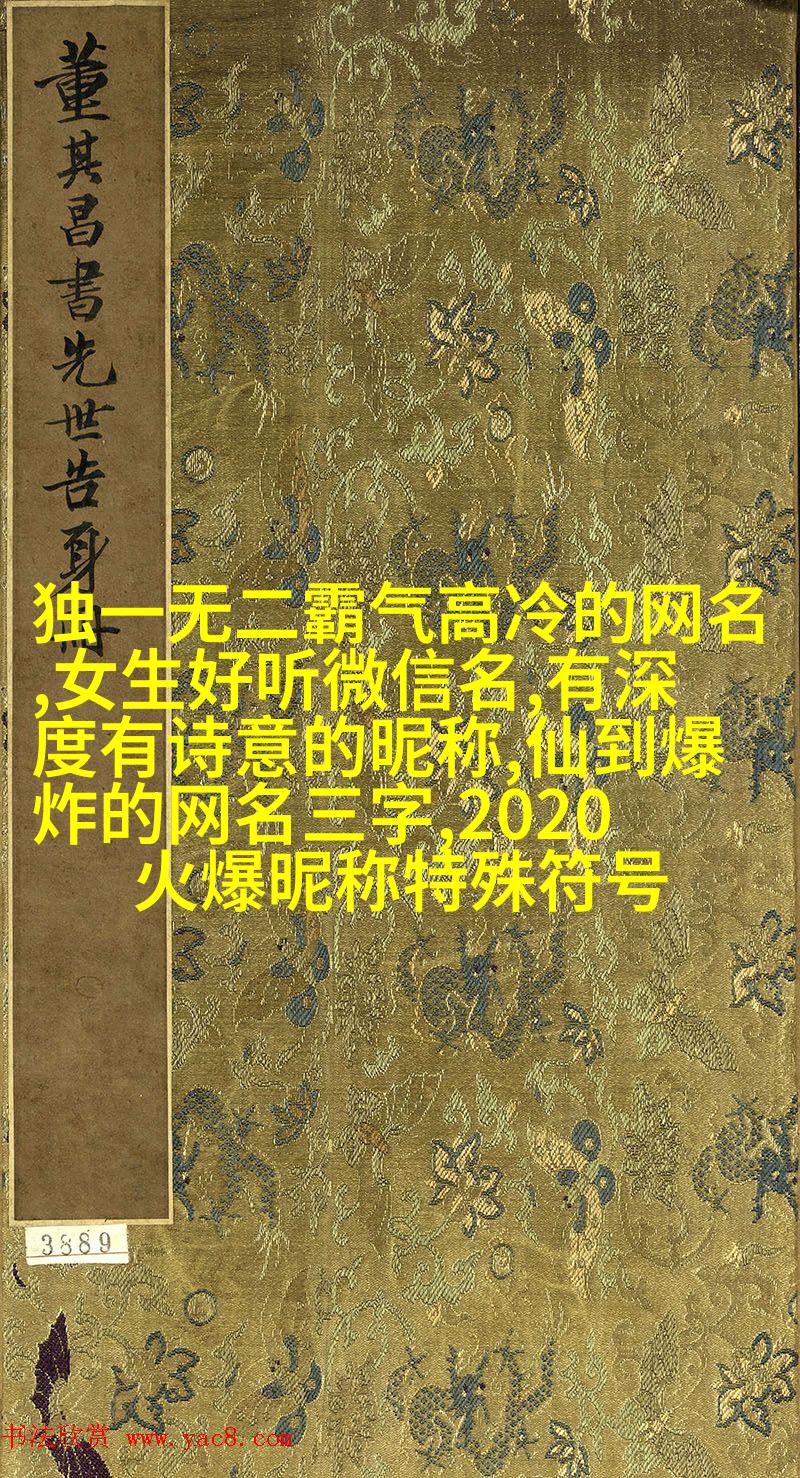 董其昌書先世告身冊
独一无二霸气高冷的网名
,女生好听微信名,有深
度有诗意的昵称,仙到爆
炸的网名三字,2020
火爆昵称特殊符号
3889
书法欣赏 www.yac8.com